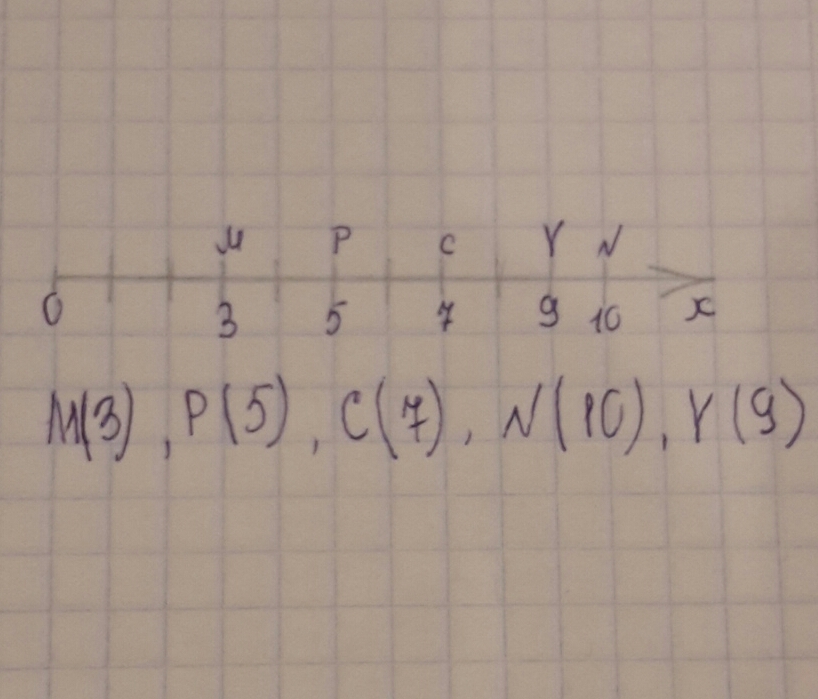 M P C Y N
0 3 5 7 9 10 x
M(3), P(5), C(7), N(10), Y(9)